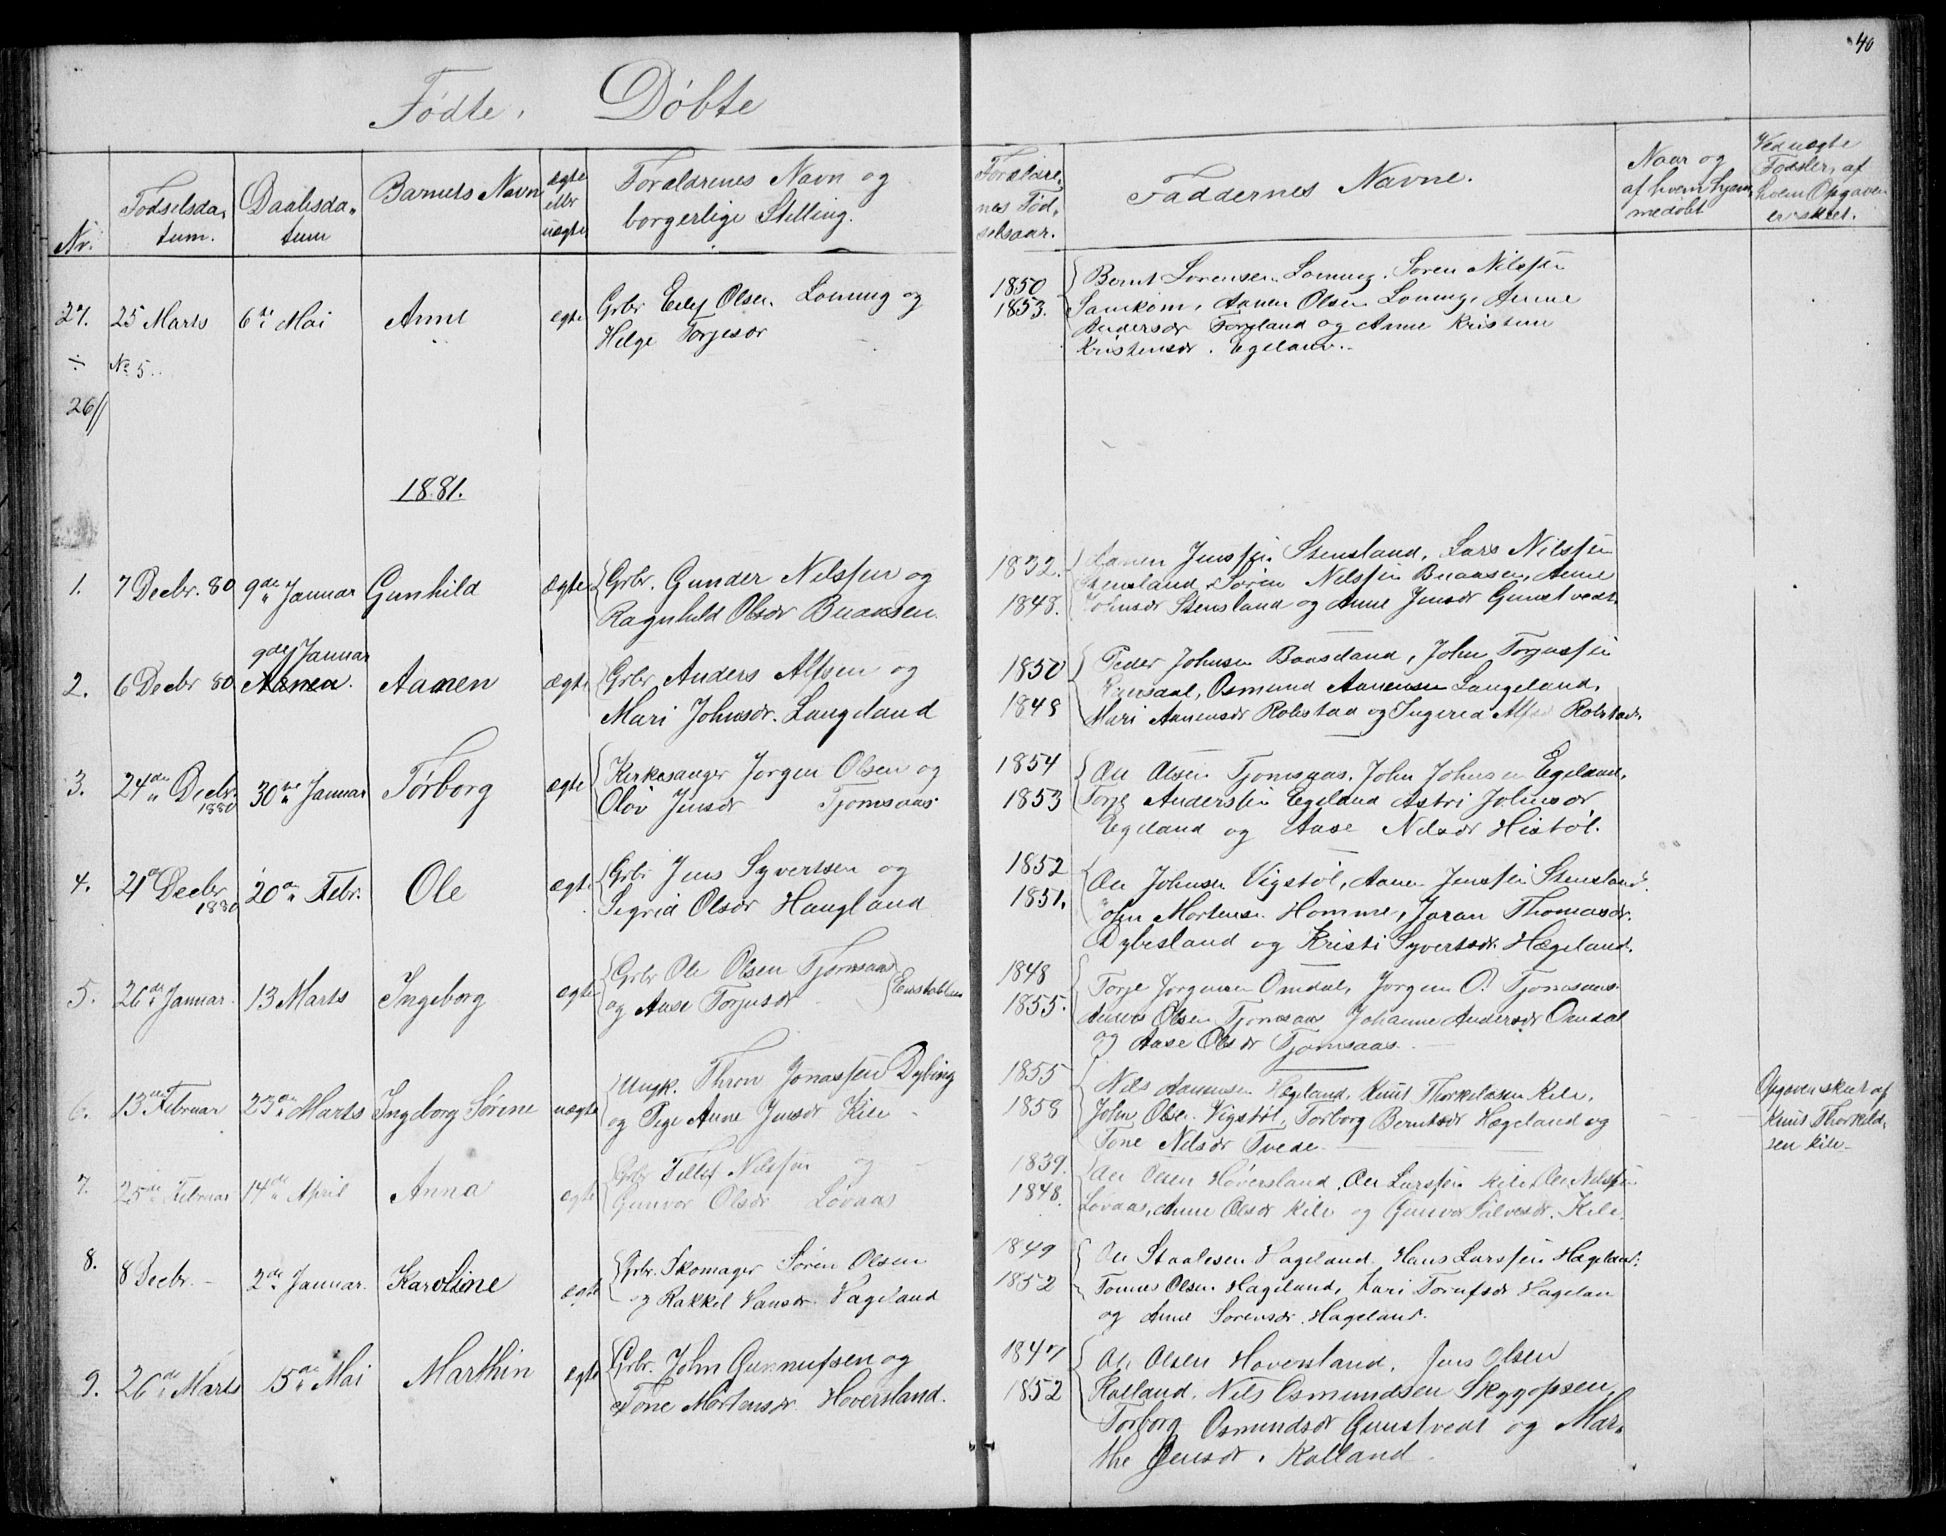 40
Fødte. Døbte
Nr.
Fødselsda-
tum.
Daabsda-
tum
Barnets Navn
ægte
eller
uægte
Forældrenes Navn og
borgerlige Stilling.
Foreldre-
nes Fød-
selsaar.
Faddernes Navne.
Naar og
af hvem hjem-
medøbt
Ved uægte
Fødsler, af
hvem Opgaven
er skeet.
27. 25 Marts 6te Mai Anne ægte Grbr Eilef Olsen Loming og
Helge Torjesdr
1850
1853.
Bernt Sørensen Loming. Søren Nilssen
Aanen Olsen Loming, Anne
Andersdr Føreland og Anne Kristine
Kristensdr. Egeland.
÷ No 5.
26//
1881.
1. 7 Decbr. 80 9de Januar Gunhild ægte Grbr. Gunder Nilssen og
Ragnhild Olsdr Buaasen.
1832.
1848.
Aanen Jenssen Stensland, Lars Nilssen
Stensland, Søren Nilssen Buaasen, Anne
Johnsdr Stensland og Anne Jensdr Gunstvedt.
2. 6 Decbr 80 9de Januar Aanen ægte Grbr. Anders Alfsen og
Mari Johnsdr. Langeland
1850
1848
Peder Johnsen Baasland, John Torjussen
Osmund Aanensen Langeland,
Mari Aanensdr Robstad og Ingered Alfsdr Robstad.
3. 24de Decbr. 1880 30te Januar Tørborg ægte Kirkesanger Jørgen Olsen og
Oløv Jensdr Tjomsaas.
1854
1853
Ole Olsen Tjomsaas, John Johnsen Egeland,
Torje Anderssen Egeland Astri Johnsdr
Egeland og Aase Nilsdr Histøl.
4. 21de Decbr 1880 20de Febr. Ole ægte Grbr Jens Syvertsen og
Sigrid Olsdr Haugland
1852
1851.
Ole Johnsen Vigstøl, Aanen Jenssen Stensland.
John Mortensen Homme, Joran Thomasdr.
Dybesland og Kristi Syvertsdr. Hægeland.
5. 26de Januar. 13 Marts Ingeborg ægte Grbr Ole Olsen Tjomsaas
og Aase Torjusdr
1848
1855.
Torje Jørgensen Omdal, Jørgen O. Tjomsaas
Anders Olsen Tjomsaas Johanne Andersdr Omdal
og Aase Olsdr Tjomsaas.
6. 13de Februar 23de Marts Ingeborg Sørine uægte Ungk. Thron Jonassen Dybing
og Pige Anne Jensdr Kile
1855
1858
Nils Aanensen Hægeland, Knut Thorkildsen Kile,
John Olsen Vigstøl, Torborg Berntsdr Hægeland og
Tone Nilsdr Tvede.
Opgaven skeet af
Knut Thorkild-
sen Kile
7. 25de Februar 14de April Anna ægte Grbr Tellef Nilssen og
Gunvor Olsdr Løvaas
1839.
1848.
Ole Olsen Høversland, Ole Larssen Kile, Ole Nilssen
Løvaas, Anne Olsdr Kile og Gunvor Salvesdr. Kile.
8. 8 Decbr. 2de Januar. Karoline ægte Grbr. Skomager Søren Olsen
og Rakkel Hansdr. Hageland
1849
1852
Ole Staalesen Hageland, Hans Larssen Hægeland,
Tomes Olsen Hageland, Kari Hagelan
og Anne Sørensdr. Hageland.
9. 26de Marts 15de Mai Marthin ægte Grbr. John Gunnufsen og
Tone Mortensdr. Høversland.
1847
1852
Ole Olsen Høversland, Jens Olsen
Kalland, Nils Osmundsen
Torborg Osmundsdr Gunstvedt og Mar-
the Jensdr. Kalland.